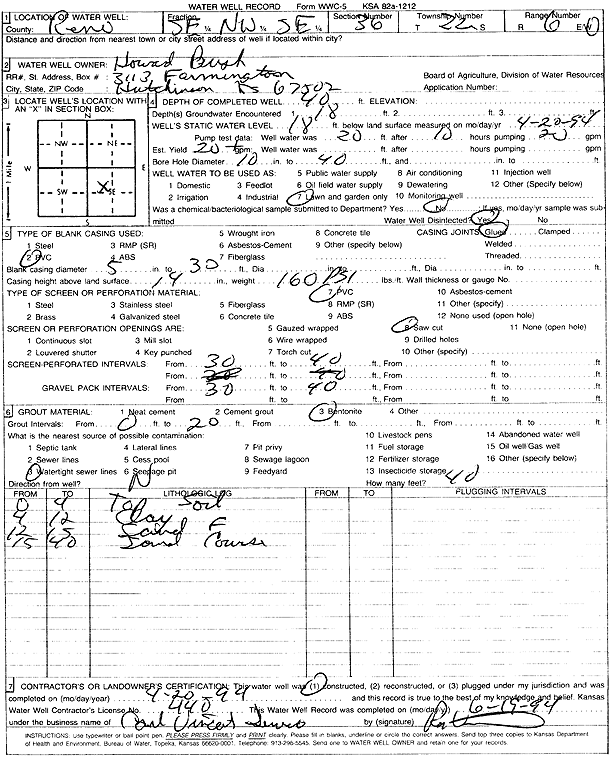 WATER WELL RECORD Form WWC-5 KSA 82a-1212
1 LOCATION OF WATER WELL: Fraction Section Number Township Number Range Number
County: Reno SE ¼ NW ¼ SE ¼ 36 T 22 S R 6 E/W
Distance and direction from nearest town or city street address of well if located within city?
2 WATER WELL OWNER: Howard Bush
RR#, St. Address, Box # : 3113 Farmington Board of Agriculture, Division of Water Resources
City, State, ZIP Code : Hutchinson Ks 67502 Application Number:
3 LOCATE WELL'S LOCATION WITH AN "X" IN SECTION BOX:
N
NW NE
W E
SW X SE
S
1 Mile
4 DEPTH OF COMPLETED WELL 40 ft. ELEVATION:
Depth(s) Groundwater Encountered 1 18 ft. 2 ft. 3 ft.
WELL'S STATIC WATER LEVEL 18 ft. below land surface measured on mo/day/yr 4-20-94
Pump test data: Well water was 20 ft. after 10 hours pumping 20 gpm
Est. Yield 20 gpm: Well water was ft. after hours pumping gpm
Bore Hole Diameter 10 in. to 40 ft., and in. to ft.
WELL WATER TO BE USED AS: 5 Public water supply 8 Air conditioning 11 Injection well
1 Domestic 3 Feedlot 6 Oil field water supply 9 Dewatering 12 Other (Specify below)
2 Irrigation 4 Industrial 7 Lawn and garden only 10 Monitoring well
Was a chemical/bacteriological sample submitted to Department? Yes No ; If yes, mo/day/yr sample was submitted Water Well Disinfected? Yes No
5 TYPE OF BLANK CASING USED: 5 Wrought iron 8 Concrete tile CASING JOINTS: Glued Clamped
1 Steel 3 RMP (SR) 6 Asbestos-Cement 9 Other (specify below) Welded
2 PVC 4 ABS 7 Fiberglass Threaded
Blank casing diameter 5 in. to 30 ft., Dia in. to ft., Dia in. to ft.
Casing height above land surface 14 in., weight 160 lbs./ft. Wall thickness or gauge No.
TYPE OF SCREEN OR PERFORATION MATERIAL: 7 PVC 10 Asbestos-cement
1 Steel 3 Stainless steel 5 Fiberglass 8 RMP (SR) 11 Other (specify)
2 Brass 4 Galvanized steel 6 Concrete tile 9 ABS 12 None used (open hole)
SCREEN OR PERFORATION OPENINGS ARE: 5 Gauzed wrapped 8 Saw cut 11 None (open hole)
1 Continuous slot 3 Mill slot 6 Wire wrapped 9 Drilled holes
2 Louvered shutter 4 Key punched 7 Torch cut 10 Other (specify)
SCREEN-PERFORATED INTERVALS: From 30 ft. to 40 ft., From ft. to ft.
From ft. to ft., From ft. to ft.
GRAVEL PACK INTERVALS: From 30 ft. to 40 ft., From ft. to ft.
From ft. to ft., From ft. to ft.
6 GROUT MATERIAL: 1 Neat cement 2 Cement grout 3 Bentonite 4 Other
Grout Intervals: From 0 ft. to 20 ft., From ft. to ft., From ft. to ft.
What is the nearest source of possible contamination: 10 Livestock pens 14 Abandoned water well
1 Septic tank 4 Lateral lines 7 Pit privy 11 Fuel storage 15 Oil well/Gas well
2 Sewer lines 5 Cess pool 8 Sewage lagoon 12 Fertilizer storage 16 Other (specify below)
3 Watertight sewer lines 6 Seepage pit 9 Feedyard 13 Insecticide storage
Direction from well? N How many feet? 40
FROM TO LITHOLOGIC LOG FROM TO PLUGGING INTERVALS
0 4 Top Soil
4 12 Clay
12 15 Sand F
15 40 Sand Course
7 CONTRACTOR'S OR LANDOWNER'S CERTIFICATION: This water well was (1) constructed, (2) reconstructed, or (3) plugged under my jurisdiction and was
completed on (mo/day/year) 4-20-94 and this record is true to the best of my knowledge and belief. Kansas
Water Well Contractor's License No. 440 This Water Well Record was completed on (mo/day/yr) 6-15-94
under the business name of by (signature)
INSTRUCTIONS: Use typewriter or ball point pen. PLEASE PRESS FIRMLY and PRINT clearly. Please fill in blanks, underline or circle the correct answers. Send top three copies to Kansas Department
of Health and Environment, Bureau of Water, Topeka, Kansas 66620-0001. Telephone: 913-296-5545. Send one to WATER WELL OWNER and retain one for your records.